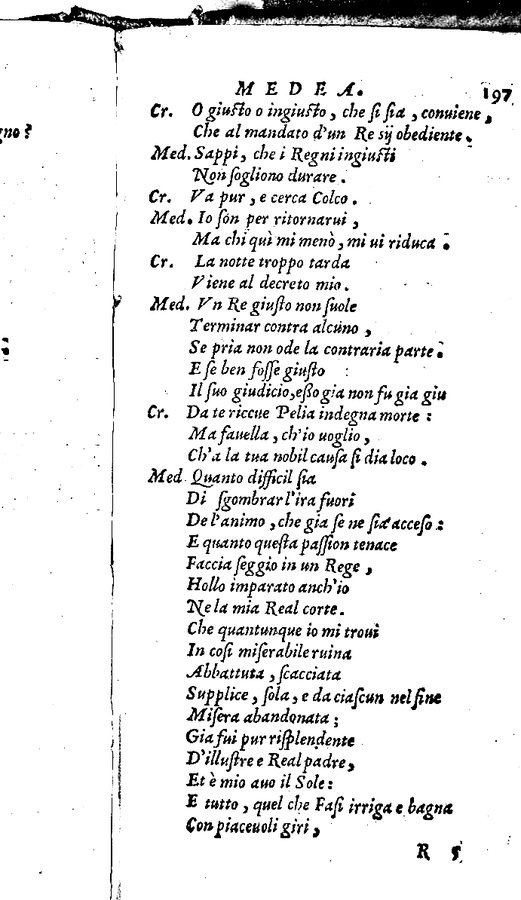 gno?
MEDEA. 197
Cr. O giuſto o ingiuſto, che ſi ſia, conuiene,
Che al mandato d'un Re sij obediente.
Med. Sappi, che i Regni ingiuſti
Non ſogliono durare.
Cr. Va pur, e cerca Colco.
Med. Io ſon per ritornarui,
Ma chi quì mi menò, mi ui riduca.
Cr. La notte troppo tarda
Viene al decreto mio.
Med. Vn Re giuſto non ſuole
Terminar contra alcuno,
Se pria non ode la contraria parte.
E ſe ben foſſe giuſto
Il ſuo giudicio, eßo gia non fu gia giu
Cr. Da te riceue Pelia indegna morte:
Ma fauella, ch'io uoglio,
Ch'a la tua nobil cauſa ſi dia loco.
Med. Quanto difficil ſia
Di ſgombrar l'ira fuori
De l'animo, che gia ſe ne ſia acceſo:
E quanto queſta paſſion tenace
Faccia ſeggio in un Rege,
Hollo imparato anch'io
Ne la mia Real corte.
Che quantunque io mi troui
In coſi miſerabile ruina
Abbattuta, ſcacciata
Supplice, ſola, e da ciaſcun nel fine
Miſera abandonata;
Gia fui pur riſplendente
D'illuſtre e Real padre,
Et è mio auo il Sole:
E tutto, quel che Faſi irriga e bagna
Con piaceuoli giri,
R 5